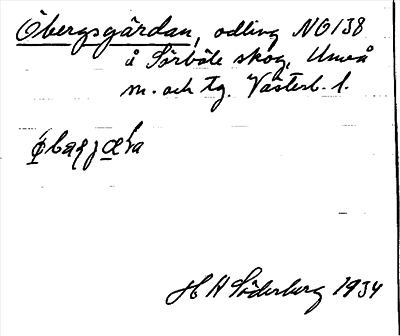 Öbergsgärdan, odling NO138
å Sörböle skog, Umeå
m. och tg. Västerb. l.
H H Söderberg 1934